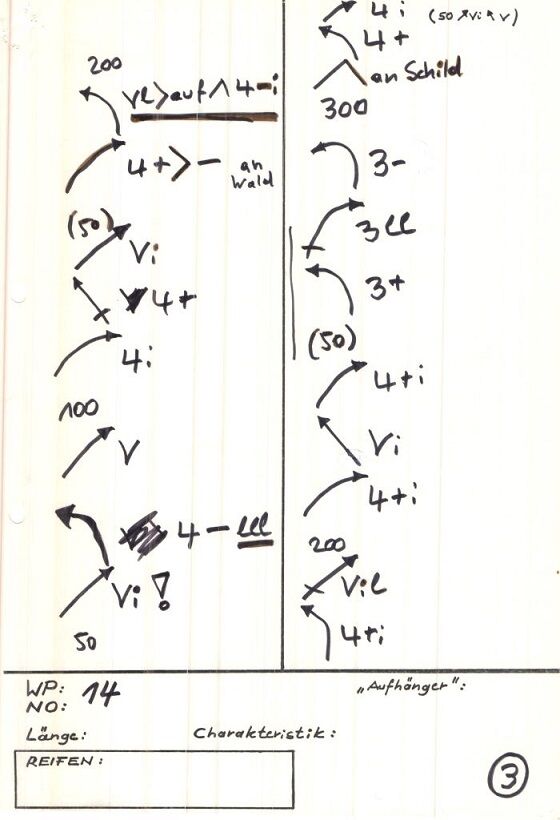 200
vll > auf ∧ 4-i
4+ > - an
Wald
(50)
Vi
4+
4i
100
V
4 - lll
Vi !
50
4 i (50 ↗ Vi ↖ V)
4 +
an Schild
300
3-
3 ll
3+
(50)
4+i
Vi
4+i
200
Vil
4+i
WP: 14
NO:
„Aufhänger":
Länge: Charakteristik:
REIFEN:
3